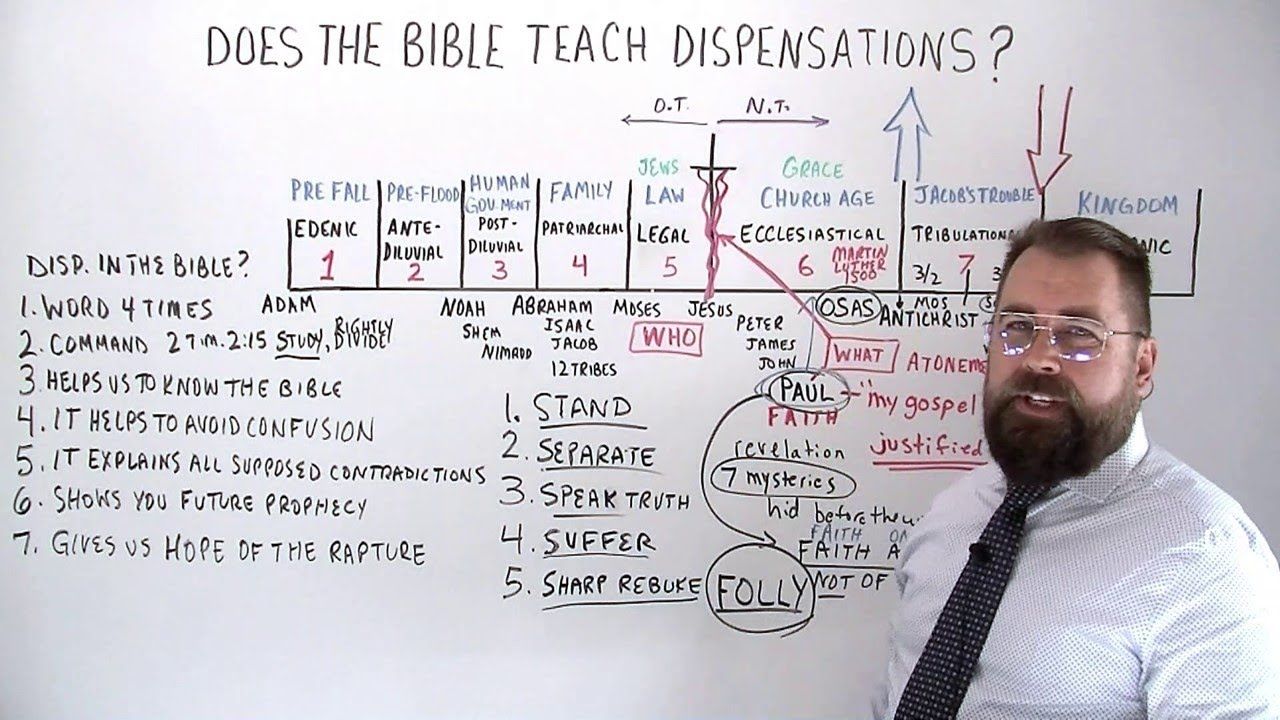 DOES THE BIBLE TEACH DISPENSATIONS?
O.T.
N.T.
PRE FALL
EDENIC
1
PRE-FLOOD
ANTE-
DILUVIAL
2
HUMAN
GOV.MENT
POST-
DILUVIAL
3
FAMILY
PATRIARCHAL
4
JEWS
LAW
LEGAL
5
GRACE
CHURCH AGE
ECCLESIASTICAL
6
MARTIN
LUTHER
1500
JACOB'S TROUBLE
TRIBULATIONAL
3/2 7 3
KINGDOM
ADAM
NOAH
SHEM
NIMROD
ABRAHAM
ISAAC
JACOB
12 TRIBES
MOSES
WHO
JESUS
PETER
JAMES
JOHN
OSAS
MOS
ANTICHRIST
WHAT
PAUL
FAITH
"my gospel
justified
revelation
7 mysteries
hid before the
FAITH
FAITH
NOT OF
FOLLY
DISP. IN THE BIBLE?
1. WORD 4 TIMES
2. COMMAND 2 TIM. 2:15 STUDY, RIGHTLY
DIVIDE
3. HELPS US TO KNOW THE BIBLE
4. IT HELPS TO AVOID CONFUSION
5. IT EXPLAINS ALL SUPPOSED CONTRADICTIONS
6. SHOWS YOU FUTURE PROPHECY
7. GIVES US HOPE OF THE RAPTURE
1. STAND
2. SEPARATE
3. SPEAK TRUTH
4. SUFFER
5. SHARP REBUKE